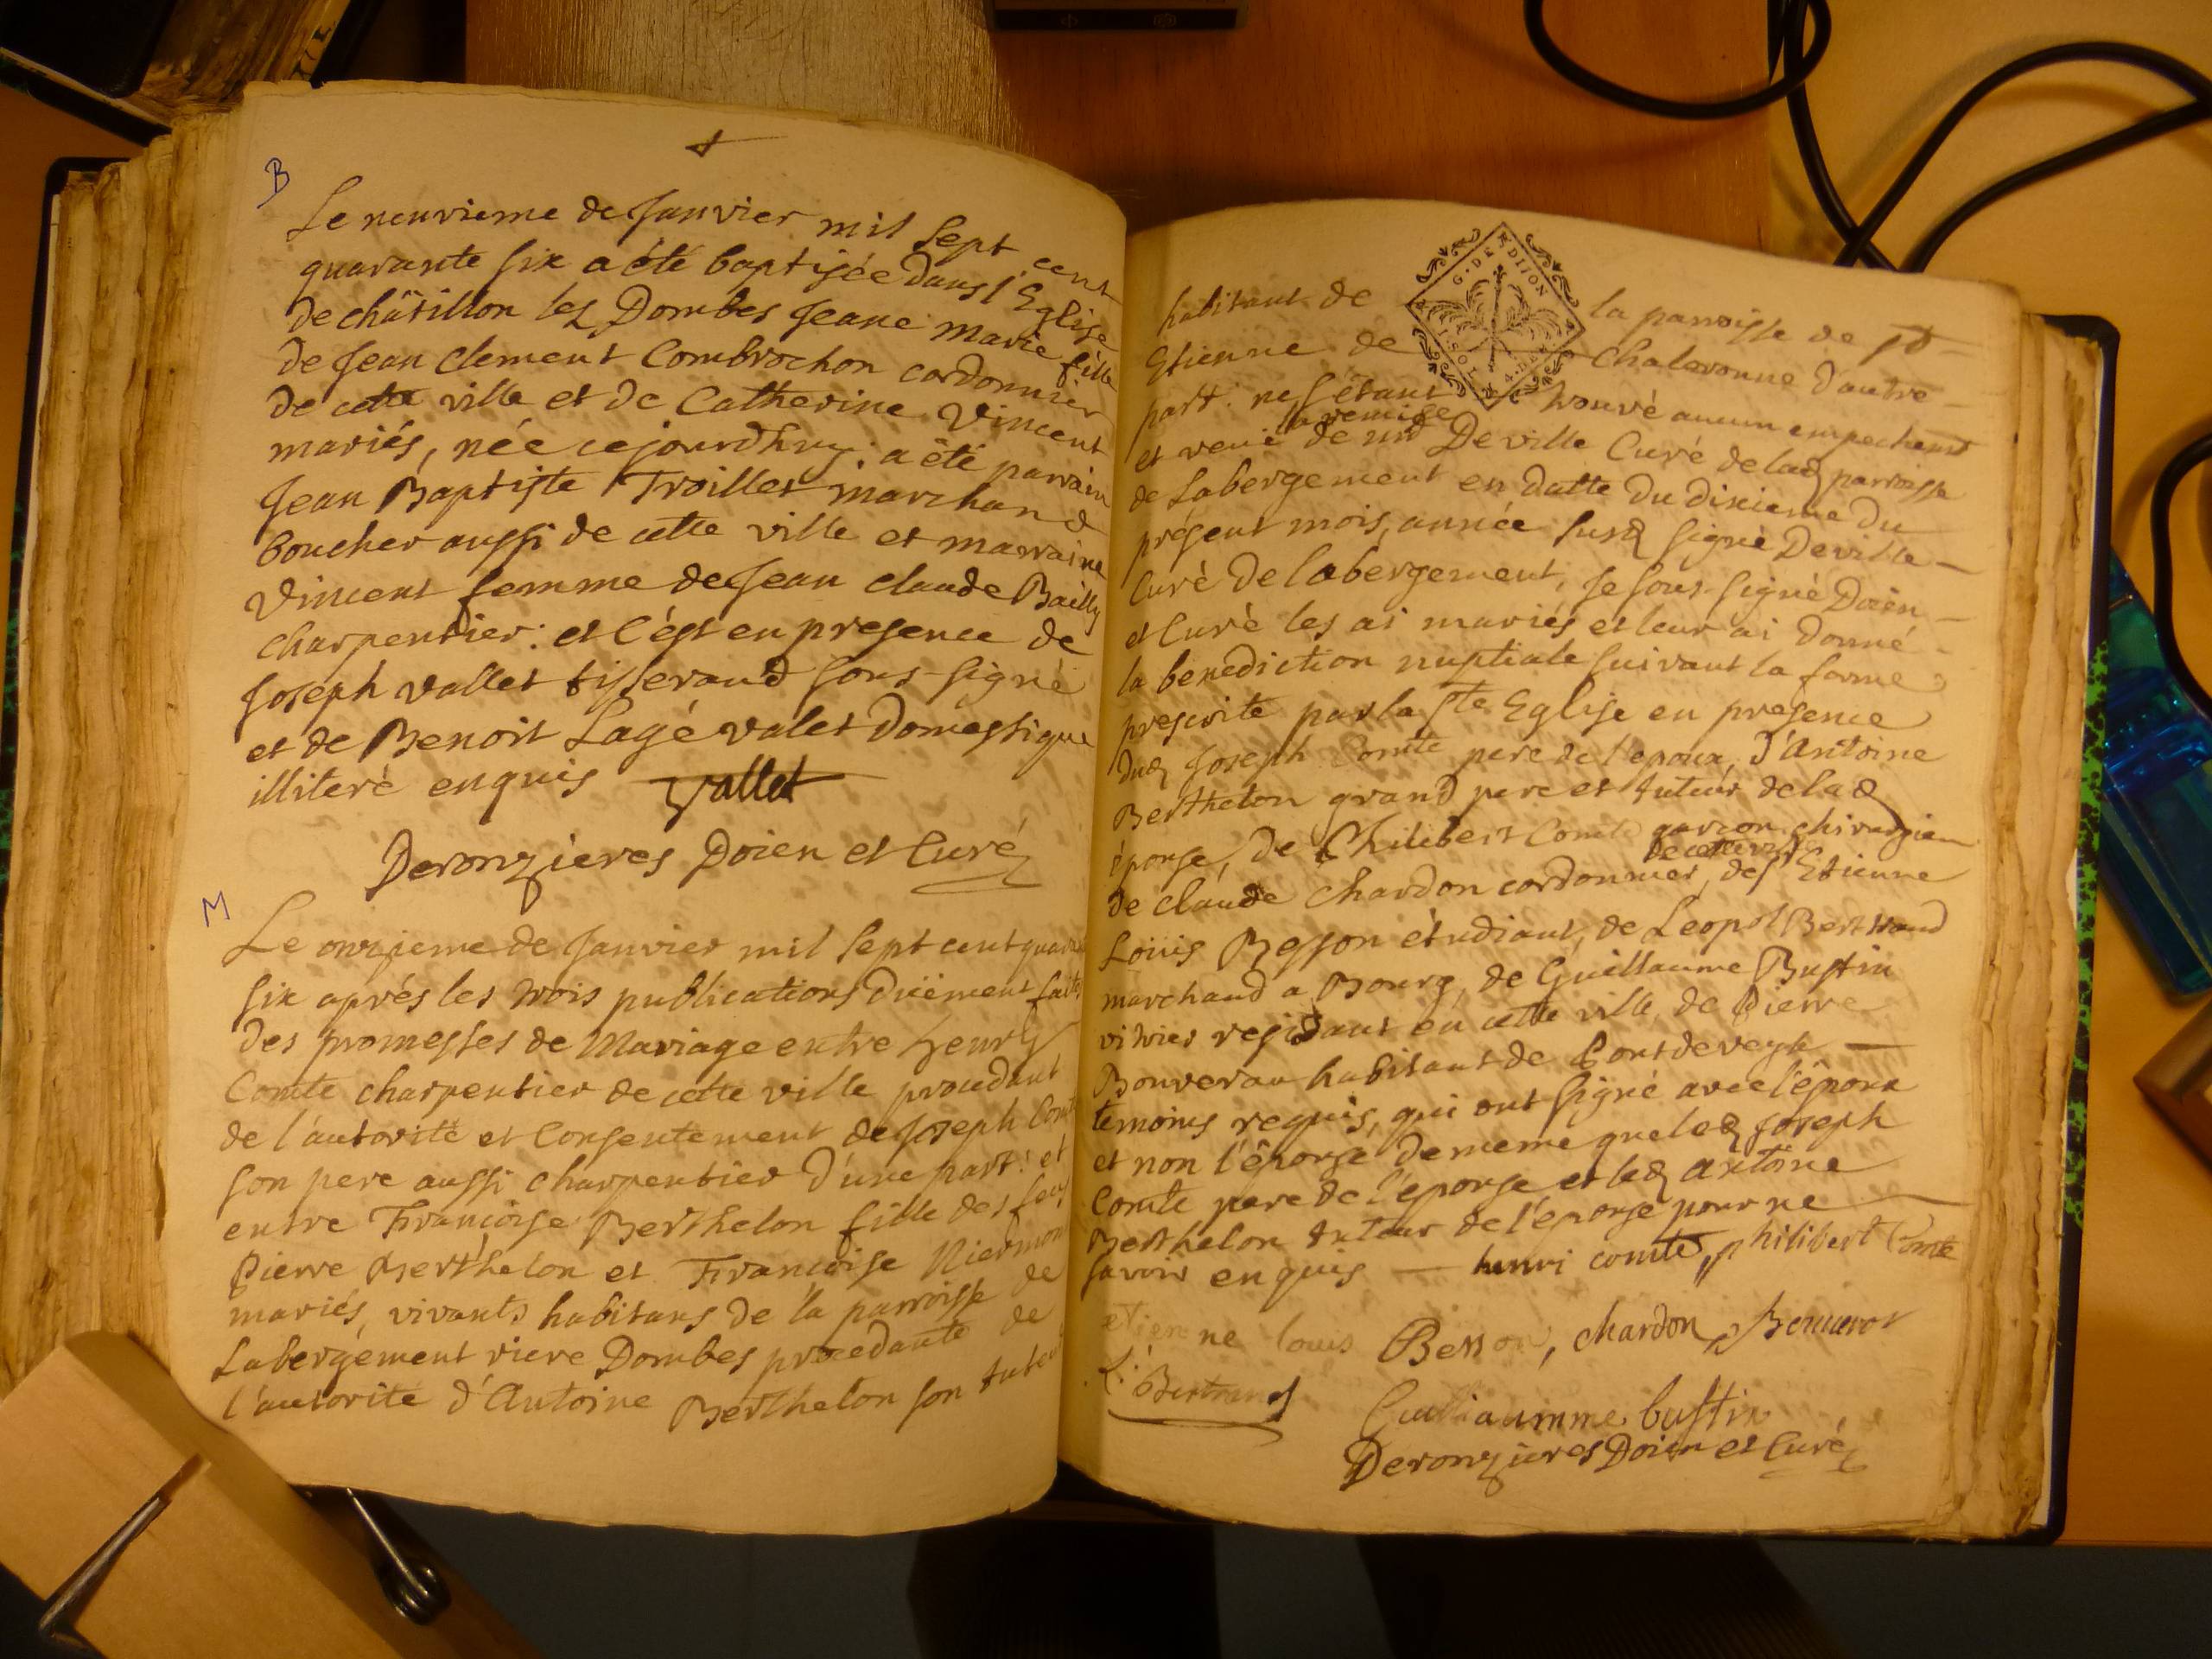 B
Le neuvieme de Janvier mil sept cent
quarante six a été baptisée dans l'Eglise
de châtillon les Dombes Jeane Marie fille
de Jean Clement Combrochon cordonnier
de cette ville et de Catherine Vincent
mariés, née cejourdhuy. a été parrain
Jean Baptiste Troillet marchand
boucher aussi de cette ville et marraine
Vincent femme de Jean claude Bailly
charpentier: et c'est en presence de
Joseph vallet tisserand sous-signé
et de Benoit Lagé valet domestique
illiteré enquis vallet
Deronzieres Doien et Curé
M
Le onzieme de Janvier mil sept cent quara
six aprés les trois publications düement faites
des promesses de Mariage entre henry
Comte charpentier de cette ville procedant
de l'autorité et consentement de Joseph Comte
son pere aussi charpentier d'une part: et
entre Françoise Berthelon fille des feu
Pierre Berthelon et Françoise
mariés, vivants habitans de la parroisse de
Labergement riere Dombes procedante de
l'autorité d'Antoine Berthelon son tuteur
G. DE DIJON
habitant de la parroisse de St
Etienne de Chalaronne d'autre
part: ne s'étant trouvé aucun empechemt
et veuë la remise de mr Deville Curé de lad parroisse
de Labergement en datte du dixieme du
présent mois, année susd signé Deville
Curé de labergement, Je sous-signé Doien
et Curé les ai mariés et leur ai donné
la benediction nuptiale suivant la forme
prescrite par la Ste Eglise en presence
dud Joseph Comte pere de l'epoux, d'Antoine
Berthelon grand pere et tuteur de lad
épouse, de Philibert Comte garçon chirurgien
de cette ville
de claude chardon cordonnier, de sr Etienne
Louis Besson étudiant, de Leopol Bertrand
marchand a Bourg, de Guillaume Bustin
vitrier residant en cette ville, de Pierre
Bouverau habitant de Pontdeveyle
temoins requis, qui ont signé avec l'époux
et non l'épouse de meme que led Joseph
Comte pere de l'epouse et led antoine
Berthelon tuteur de l'épouse pour ne
savoir enquis henri comte, philibert Comte
etienne louis Besson, chardon,
L. Bertrand
Guilliaumme bustin
Deronzieres Doien et Curé